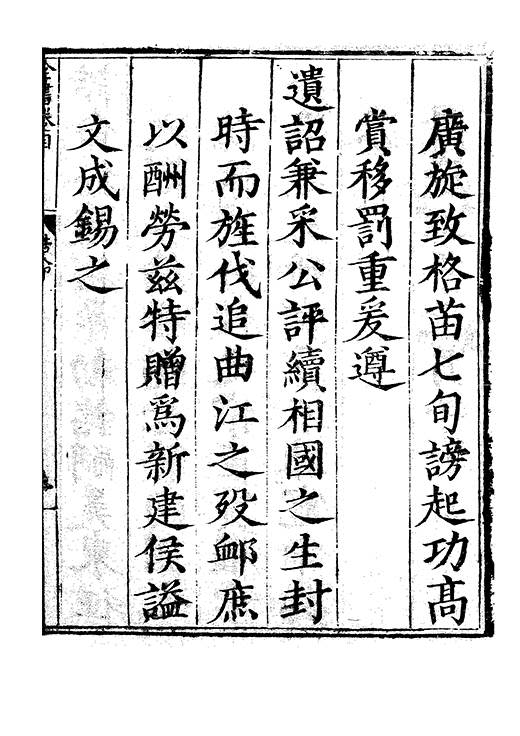 廣旋致格苗七旬謗起功髙
賞移罰重爰遵
遺詔兼采公評續相國之生封
時而旌伐追曲江之殁䘏庶
以酬勞兹特贈爲新建侯謚
文成錫之